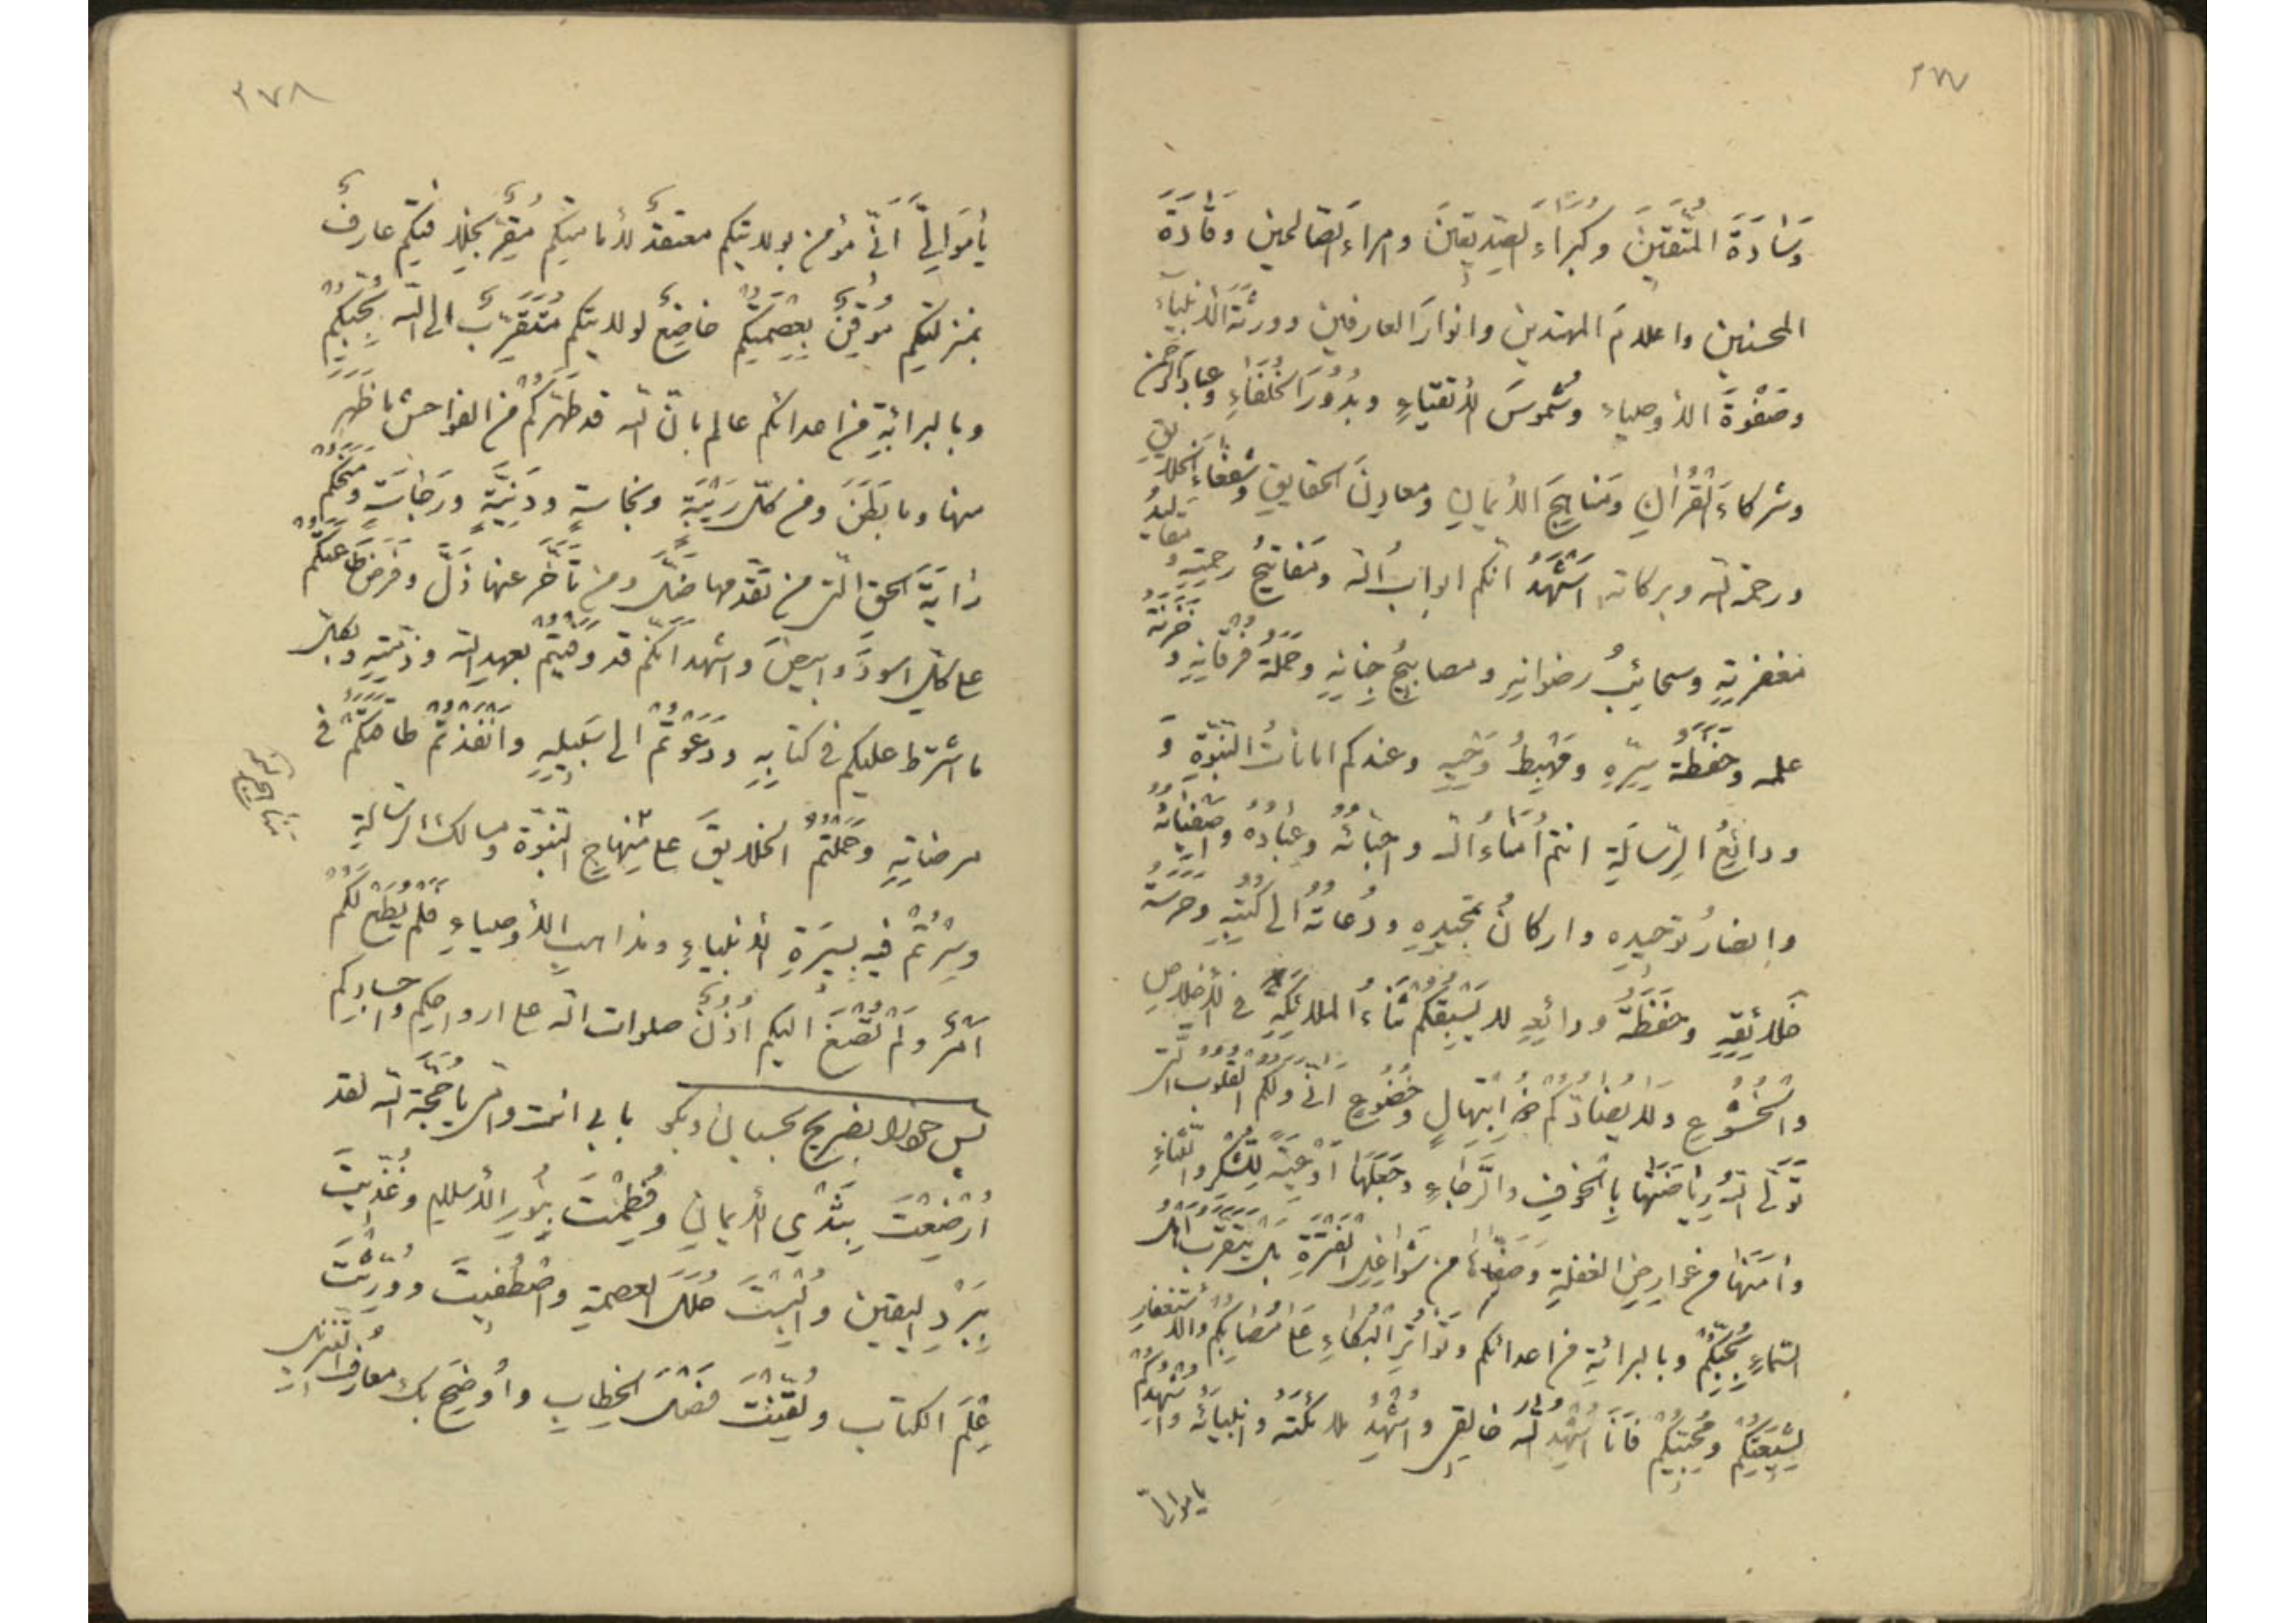 ٣٧٧
وَسَادَةَ المُتَّقِينَ وَكُبَرَاءَ الصِّدِّيقِينَ وامراءَ الصّالحين وَقَادَةَ
المحسنين واعلامَ المهتدين وانوارَ العارفين وورثةَ الأنبیآءِ
وصَفْوَةَ الأوصیاءِ وشُمُوسَ الأتقیاءِ وبُدُورَ الخُلَفَاءِ وعِبَادَ الرحمن
وشرکاءَ القُرْانِ ومَنَاهِجَ الأیمانِ ومعادِنَ الحقایقِ وشُفَعَاءَ الخلایقِ
ورحمة الله وبرکاته اَشْهَدُ انّکم ابوابُ الله ومَفَاتیحُ رحمتِهِ و مقالیدُ
مغفرتِهِ وسحائبُ رضوانِهِ ومصابیحُ جِنانِهِ وحَمَلَةُ فُرْقَانِهِ وخَزَنَةُ
علمه وحَفَظَةُ سِرِّهِ ومَهْبِطُ وَحْیِهِ وعندکم اماناتُ النّبوّةِ وَ
ودائِعُ الرِّسَالَةِ انتم اُمَنَاءُ الله واحبّائُه وعِبَادُهُ واصفیائُهُ
وانصارُ توحیدِهِ وارکانُ تمجیدِهِ ودُعاتُهُ الی کُتُبِهِ وحَرَسَةُ
خَلائِقِهِ وحَفَظَةُ ودائعِهِ لا یَسْبِقُکُمْ ثَنَاءُ الملائکةِ فی الأخلاصِ
والخُشُوْعِ ولا یُضَادُّکُمْ ذو ابتِهَالٍ وخُضُوعٍ انّی ولکم القُلُوبُ الّتی
تَوَلَّی اللهُ رِیاضَتَهَا بِالْخَوْفِ والرَّجَاءِ وجَعَلَهَا اَوْعِیَةً لِلشُّکْرِ والثَّنَاءِ
وآمَنَهَا من عَوَارِضِ الغفلةِ وصَفَّاهَا من شَوَاغِلِ الفَتْرَةِ بل یتقرّب اهل
السّماءِ بِحُبِّکُمْ وبالبرائةِ من اعدائکم وتَوَاتُرِ البُکَاءِ عَلی مُصَابِکُمْ والاستغفارِ
لِشیعَتِکُمْ ومُحِبّیکُمْ فَانَا اُشْهِدُ الله خالِقی واُشْهِدُ ملائکتَهُ وانبیائَهُ واُشْهِدُکُمْ
یا موالیّ
٣٧٨
یا مَوَالِیَّ انّی مؤمن بولایتکم معتقدٌ لأمامتِکُم مُقِرٌّ بخلافتِکُم عارفٌ
بمنزلتِکُم مُوقِنٌ بِعِصْمَتِکُمْ خاضِعٌ لولایتِکُم مُتَقَرِّبٌ الی الله بِحُبِّکُمْ
وبالبرائةِ من اعدائکم عالم بانّ الله قد طَهَّرَکُمْ من الفواحش ما ظَهَرَ
منها وما بَطَنَ ومن کلّ رَیْبَةٍ ونجاسةٍ ودَنِیَّةٍ ورَجَاسَةٍ ومَنَحَکُمْ
رایَةَ الحقّ الّتی من تَقَدَّمَها ضَلَّ ومن تَأَخَّرَ عنها ذَلَّ وفَرَضَ طَاعَتَکُمْ
علی کلّ اسودَ وابیضَ واشهد انّکم قد وفَیْتُمْ بعهدِ الله وذمّتِهِ وبکلّ
ما اشترط علیکم فی کتابِهِ ودَعَوْتُمْ الی سَبیلِهِ وانفَذْتُمْ طاقَتَکُمْ فی
مرضاتِهِ وحَمَلْتُمْ الخلایقَ علی مِنْهَاجِ النّبُوّة ومسالک الرّسالةِ
وسِرْتُمْ فیه بِسیرَةِ الأنبیاءِ ومذاهب الأوصیاءِ فلم یُطَعْ لکُم
امْرٌ ولَمْ تُصْغَ الیکم اُذُنٌ صلوات الله علی ارواحِکُم واجسادِکُم
پس خودرا بضریح بچسبان وبگو بابی انت وامّی یا حُجَّةَ الله لقد
اُرْضِعْتَ بِثَدْیِ الأیمانِ وفُطِمْتَ بِنُورِ الأسلامِ وغُذّیتَ
بِبَرْدِ الیقین واُلْبِسْتَ حُلَلَ العصمةِ واصْطُفیتَ ووُرِّثْتَ
عِلْمَ الکتابِ ولُقِّنْتَ فَصْلَ الخِطابِ واُوضِحَ بِکَ معارِفُ التَّنزیلِ